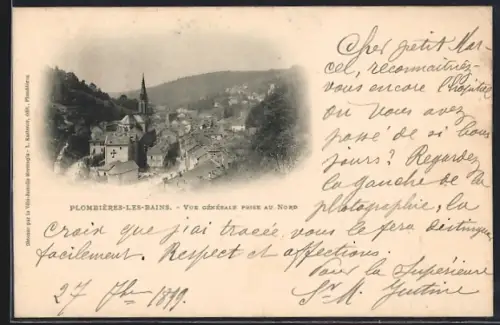 Cher petit Mar-
cel, reconnaitriez-
vous encore l'hôpital
où vous avez
passé de si bons
jours? Regardez
la gauche de la
photographie, la
PLOMBIÈRES-LES-BAINS. - VUE GÉNÉRALE PRISE AU NORD
Croix que j'ai tracée, vous le fera distinguer
facilement. Respect et affections.
Pour la Supérieure
27 7bre 1899
Sr M. Justine